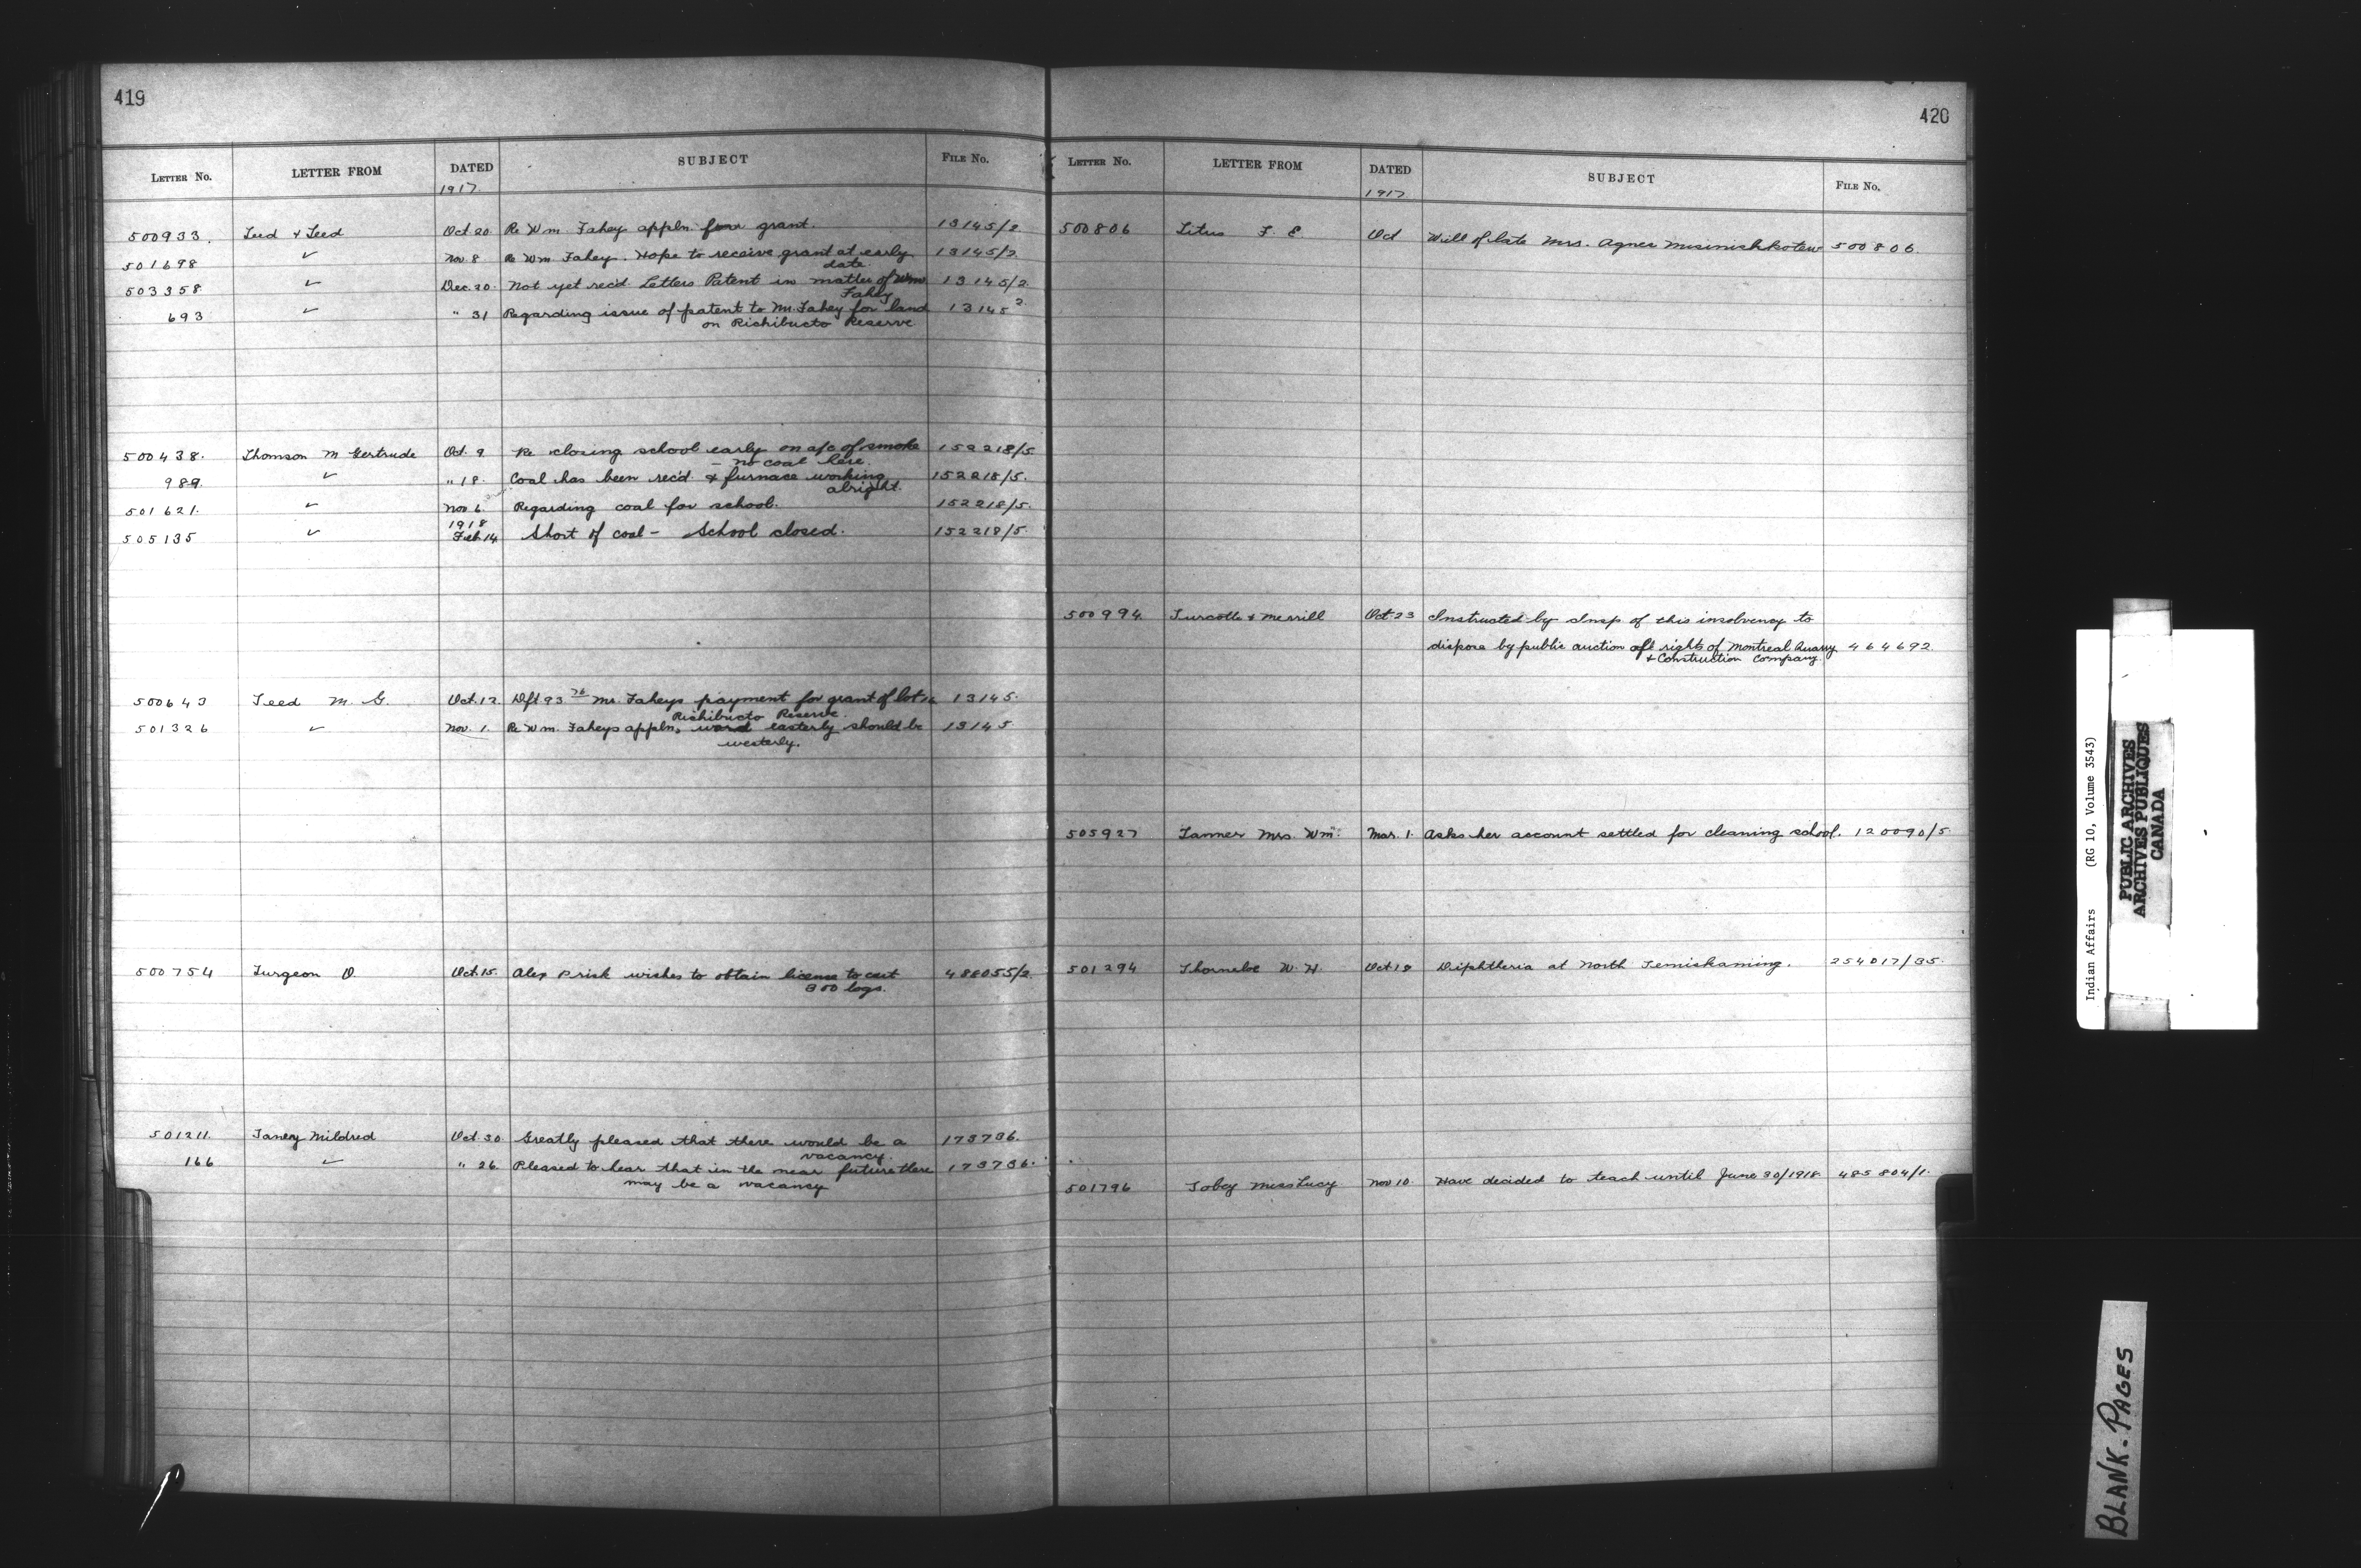 419
LETTER No. LETTER FROM DATED SUBJECT FILE No.
1917.
500933. Teed & Teed Oct 20 Re Wm. Fahey appln. for grant. 13145/2
501698 ✓ Nov. 8 Re Wm Fahey. Hope to receive grant at early 13145/2
date.
503358 ✓ Dec. 20. Not yet rec'd Letters Patent in matter of Wm 13145/2
Fahey
693 ✓ " 31 Regarding issue of patent to Mr. Fahey for land 13145 2
on Richibucto Reserve
500438. Thomson M Gertrude Oct. 9 Re closing school early on a/c of smoke 152218/5
– no coal here.
989. ✓ " 18. Coal has been rec'd & furnace working 152218/5.
alright.
501621. ✓ Nov 6. Regarding coal for school. 152218/5.
1918
505135 ✓ Feb 14 Short of coal – School closed. 152218/5
500643 Teed M. G. Oct. 12. Dft 93 76 Mr. Faheys payment for grant of lot 13145.
Richibucto Reserve.
501326 ✓ Nov. 1. Re Wm. Faheys appln, word easterly should be 13145
westerly.
500754 Turgeon O. Oct. 15. Alex Prisk wishes to obtain license to cut 488055/2.
300 logs.
501211. Janey Mildred Oct. 30. Greatly pleased that there would be a 173736.
vacancy.
166 ✓ " 26. Pleased to hear that in the near future there 173736.
may be a vacancy
420
LETTER No. LETTER FROM DATED SUBJECT FILE No.
1917
500806 Titus F. E. Oct Will of late Mrs. Agnes 500806.
500994. Turcotte & Merrill Oct. 23 Instructed by Insp of this insolvency to
dispose by public auction rights of Montreal Quarry 464692.
& Construction Company.
505927 Tanner Mrs. Wm. Mar. 1. Asks her account settled for cleaning school. 120090/5
501294 Thorneloe W. H. Oct 19 Diphtheria at North Temiskaming. 254017/35.
501796 Tobey Miss Lucy Nov 10. Have decided to teach until June 30/1918 485804/1.
Indian Affairs (RG 10, Volume 3543)
PUBLIC ARCHIVES
ARCHIVES PUBLIQUES
CANADA
BLANK-PAGES